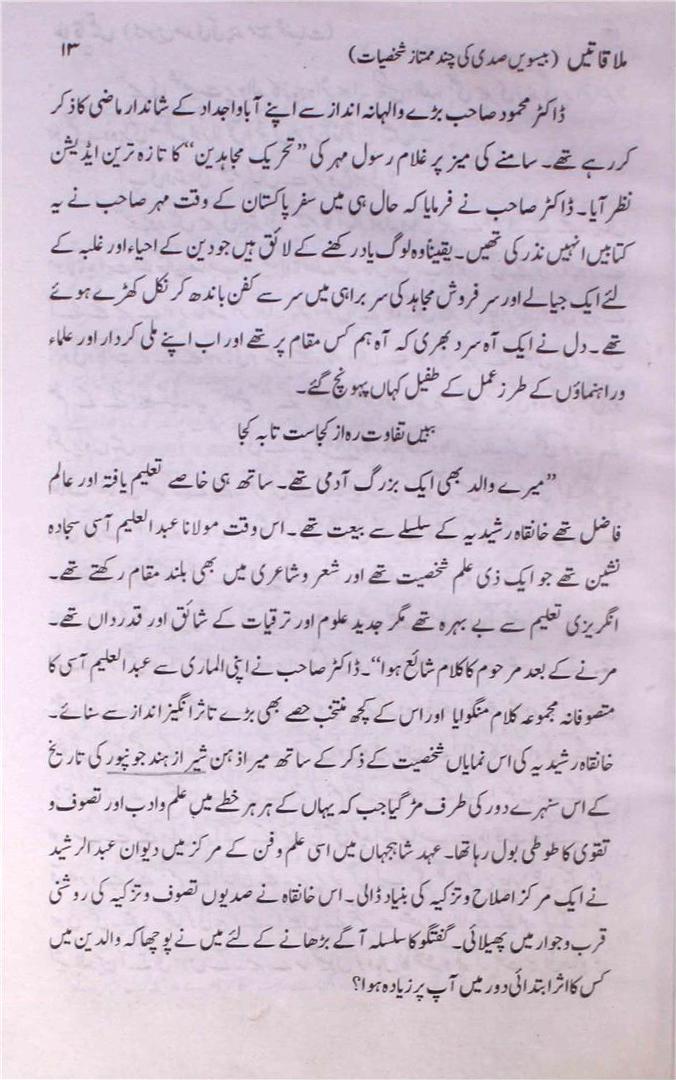 ملاقاتیں (بیسویں صدی کی چند ممتاز شخصیات) ۱۳
ڈاکٹر محمود صاحب بڑے والہانہ انداز سے اپنے آباواجداد کے شاندار ماضی کا ذکر
کر رہے تھے۔ سامنے کی میز پر غلام رسول مہر کی ”تحریک مجاہدین“ کا تازہ ترین ایڈیشن
نظر آیا۔ ڈاکٹر صاحب نے فرمایا کہ حال ہی میں سفر پاکستان کے وقت مہر صاحب نے یہ
کتابیں انہیں نذر کی تھیں۔ یقیناً وہ لوگ یاد رکھنے کے لائق ہیں جو دین کے احیاء اور غلبہ کے
لئے ایک جیالے اور سرفروش مجاہد کی سربراہی میں سر سے کفن باندھ کر نکل کھڑے ہوئے
تھے۔ دل نے ایک آہ سرد بھری کہ آہ ہم کس مقام پر تھے اور اب اپنے ملی کردار اور علماء
وراہنماؤں کے طرز عمل کے طفیل کہاں پہونچ گئے۔
ببیں تفاوت رہ از کجاست تا بہ کجا
”میرے والد بھی ایک بزرگ آدمی تھے۔ ساتھ ہی خاصے تعلیم یافتہ اور عالم
فاضل تھے خانقاہ رشیدیہ کے سلسلے سے بیعت تھے۔ اس وقت مولانا عبدالعلیم آسی سجادہ
نشین تھے جو ایک ذی علم شخصیت تھے اور شعر و شاعری میں بھی بلند مقام رکھتے تھے۔
انگریزی تعلیم سے بے بہرہ تھے مگر جدید علوم اور ترقیات کے شائق اور قدرداں تھے۔
مرنے کے بعد مرحوم کا کلام شائع ہوا“۔ ڈاکٹر صاحب نے اپنی الماری سے عبدالعلیم آسی کا
متصوفانہ مجموعہ کلام منگوایا اور اس کے کچھ منتخب حصے بھی بڑے تاثر انگیز انداز سے سنائے۔
خانقاہ رشیدیہ کی اس نمایاں شخصیت کے ذکر کے ساتھ میرا ذہن شیراز ہند جونپور کی تاریخ
کے اس سنہرے دور کی طرف مڑ گیا جب کہ یہاں کے ہر ہر خطے میں علم و ادب اور تصوف و
تقوی کا طوطی بول رہا تھا۔ عہد شاہجہاں میں اسی علم و فن کے مرکز میں دیوان عبدالرشید
نے ایک مرکز اصلاح و تزکیہ کی بنیاد ڈالی۔ اس خانقاہ نے صدیوں تصوف و تزکیہ کی روشنی
قرب و جوار میں پھیلائی۔ گفتگو کا سلسلہ آگے بڑھانے کے لئے میں نے پوچھا کہ والدین میں
کس کا اثر ابتدائی دور میں آپ پر زیادہ ہوا؟